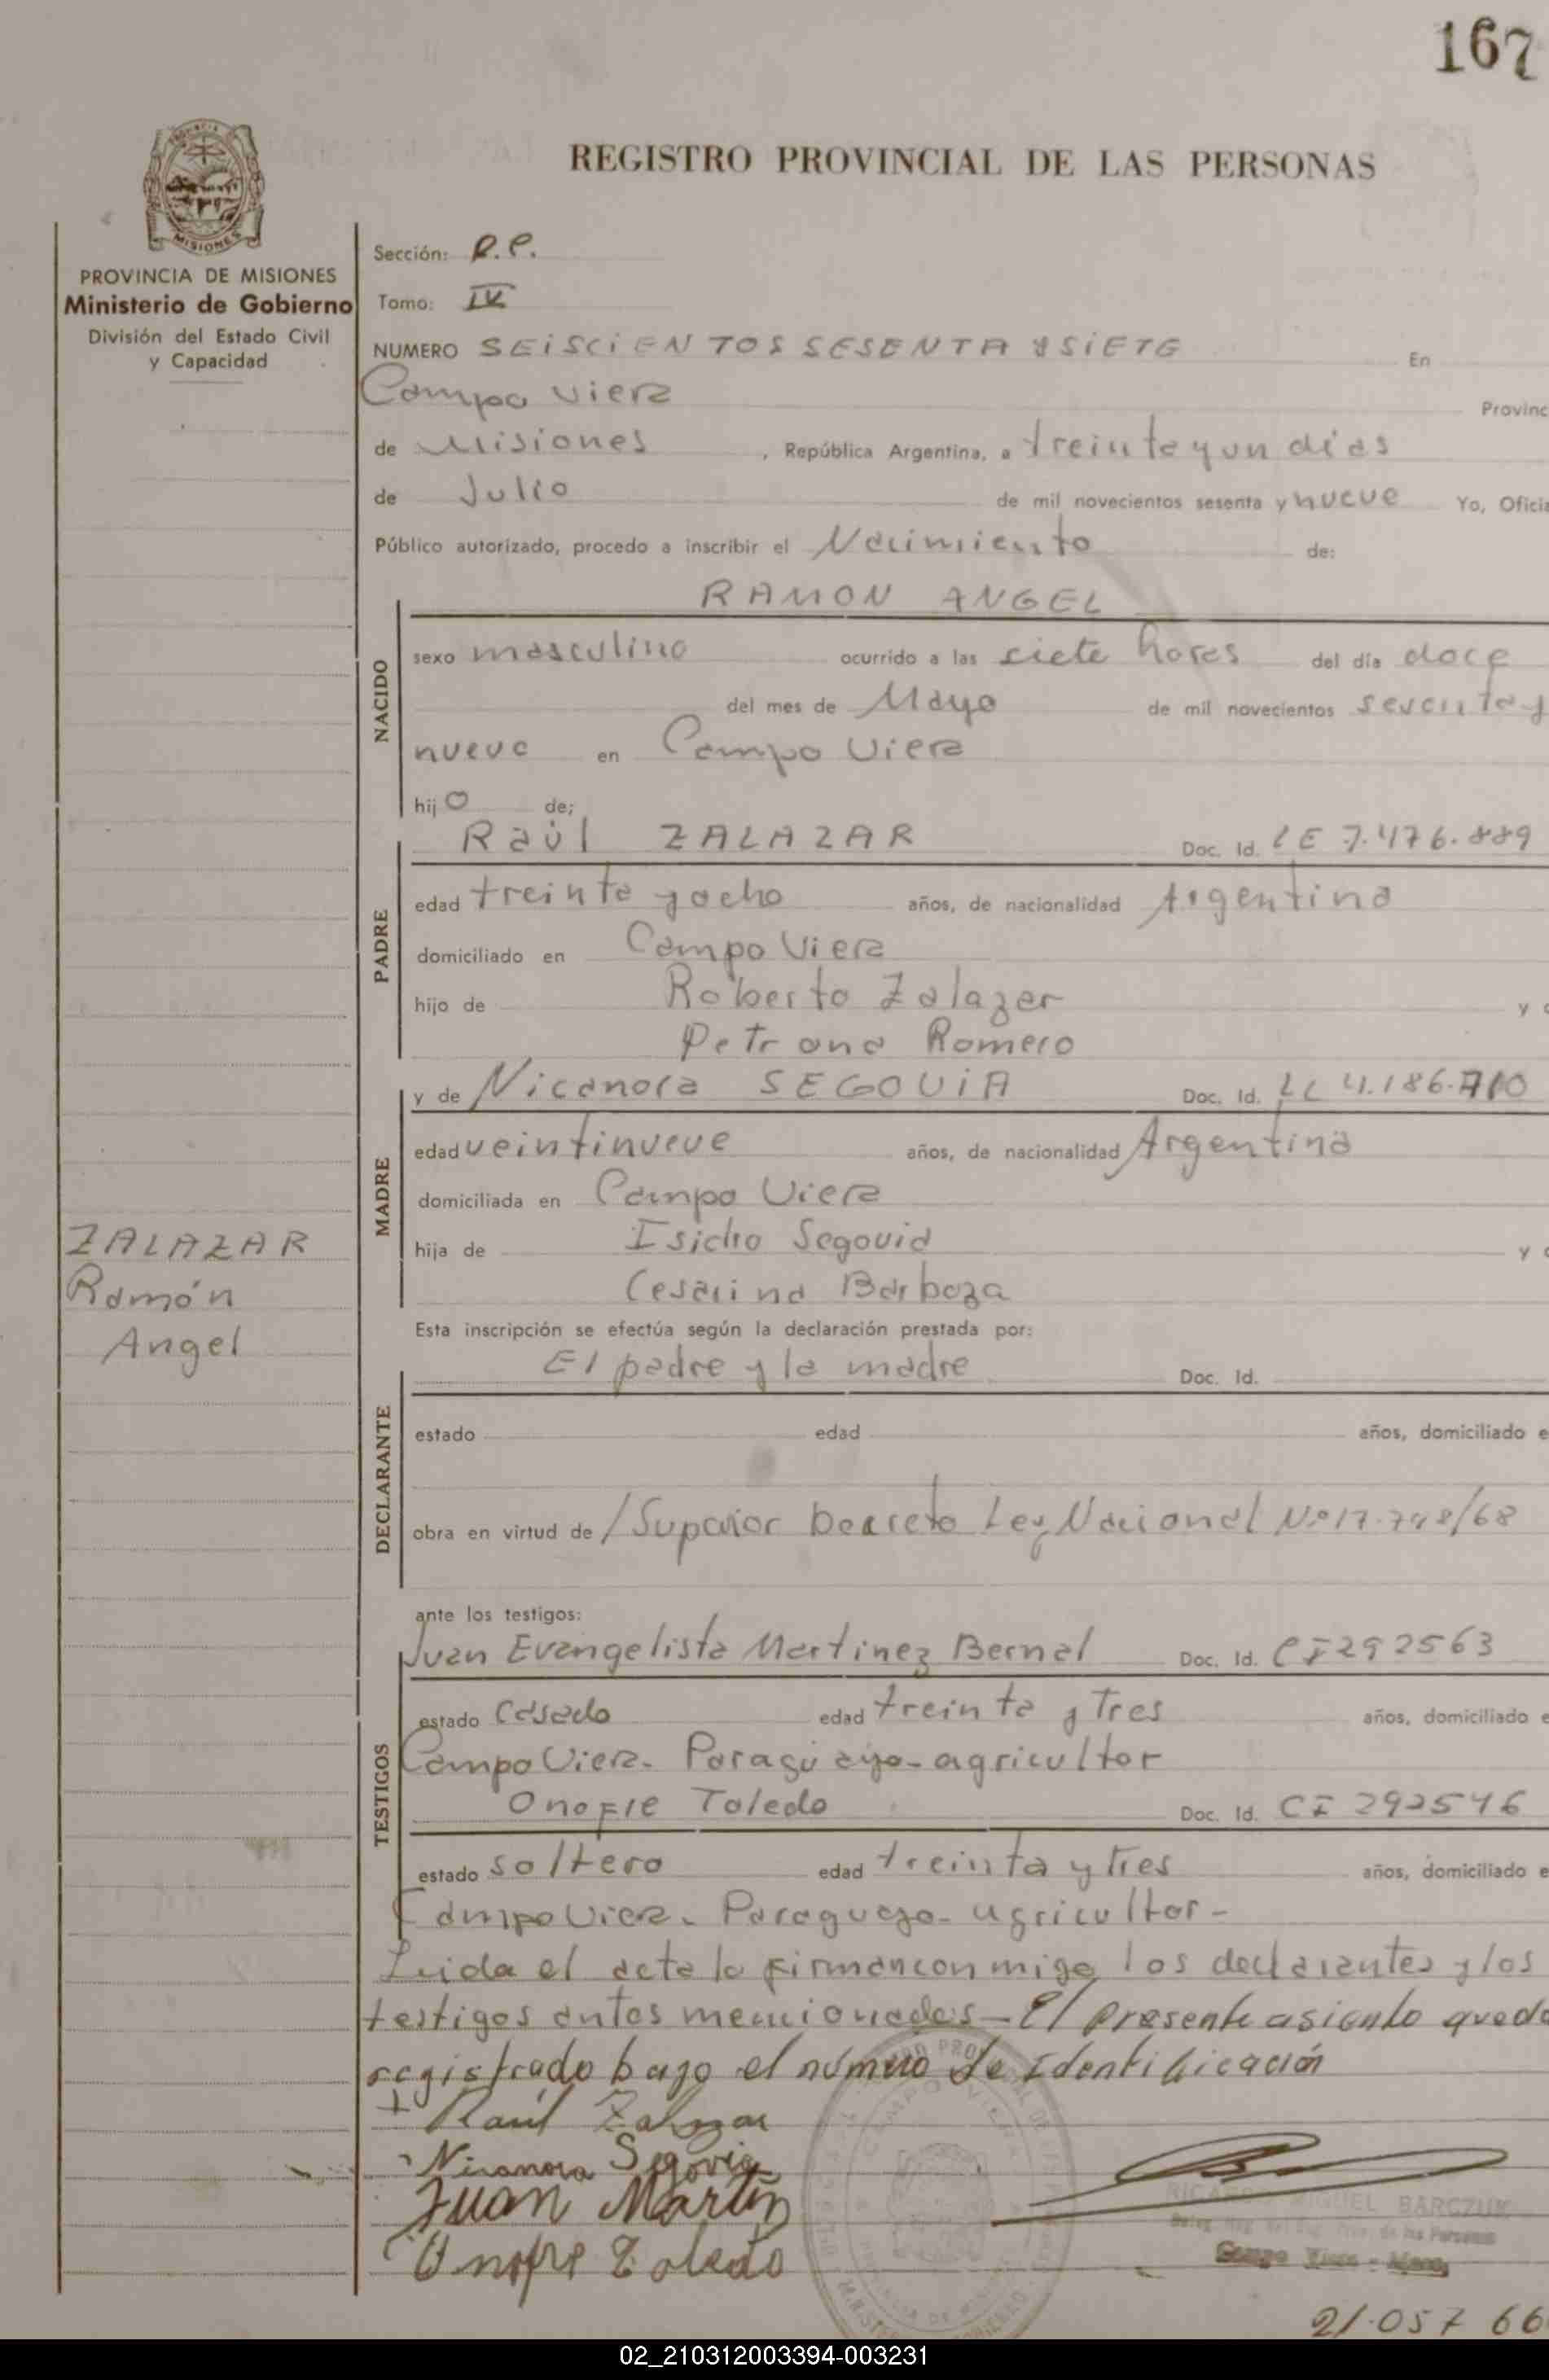 167
REGISTRO PROVINCIAL DE LAS PERSONAS
MISIONES
PROVINCIA DE MISIONES
Ministerio de Gobierno
División del Estado Civil
y Capacidad
Sección: R.P.
Tomo: IV
NUMERO SEISCIENTOS SESENTA Y SIETE En
Campo Viera Provinc
de Misiones, República Argentina, a treinta y un dias
de Julio de mil novecientos sesenta y nueve Yo, Oficia
Público autorizado, procedo a inscribir el Nacimiento de:
NACIDO
RAMON ANGEL
sexo masculino ocurrido a las siete horas del día doce
del mes de Mayo de mil novecientos sesenta y
nueve en Campo Viera
hijo de;
PADRE
Raúl ZALAZAR Doc. Id. LE 7.476.889
edad treinta y ocho años, de nacionalidad Argentina
domiciliado en Campo Viera
hijo de Roberto Zalazar y
Petrona Romero
MADRE
y de Nicanora SEGOVIA Doc. Id. LC 4.186.710
edad veintinueve años, de nacionalidad Argentina
domiciliada en Campo Viera
hija de Isidro Segovia y
Cesarina Barboza
ZALAZAR
Ramón
Angel
Esta inscripción se efectúa según la declaración prestada por:
DECLARANTE
El padre y la madre Doc. Id.
estado edad años, domiciliado e
obra en virtud de /Superior Decreto Ley Nacional Nº 17.748/68
ante los testigos:
TESTIGOS
Juan Evangelista Martinez Bernal Doc. Id. CI 292563
estado Casado edad treinta y tres años, domiciliado e
Campo Viera. Paraguayo- agricultor
Onofre Toledo Doc. Id. CI 292546
estado soltero edad treinta y tres años, domiciliado e
Campo Viera. Paraguayo- agricultor-
Leida el acta la firman conmigo los declarantes y los
testigos antes mencionados- El presente asiento queda
registrado bajo el número de identificación
Raúl Zalazar
Nicanora Segovia
Juan Martin
Onofre Toledo
RICARDO MIGUEL BARCZUK
Campo Viera - Mnes.
21.057 66
02_210312003394-003231